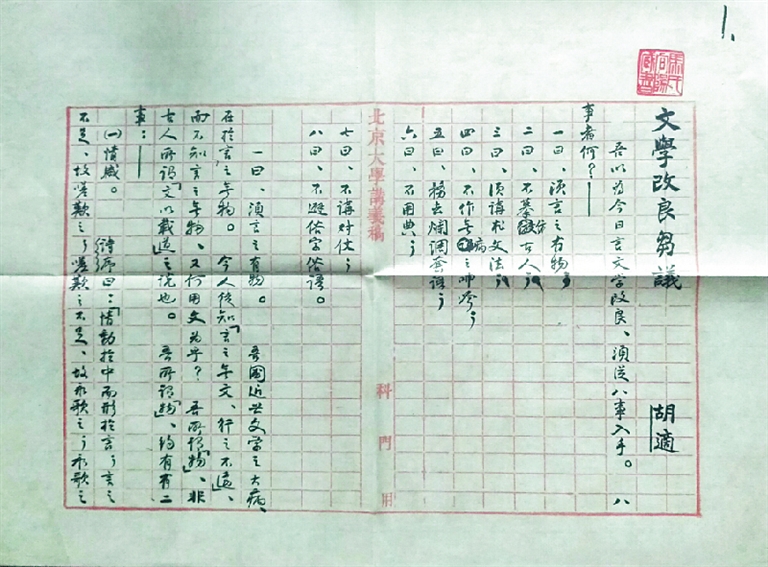 1.
文學改良芻議　胡適
吾以为今日言文学改良、須從八事入手。八
事者何？——
一曰、須言之有物；
二曰、不摹仿古人；
三曰、須講求文法；
四曰、不作无病之呻吟；
五曰、務去爛調套語；
六曰、不用典；
北京大學講義稿　科門用
七曰、不講对仗；
八曰、不避俗字俗語。
一曰、須言之有物。吾國近世文学之大病、
在於言之无物。今人徒知「言之无文、行之不遠」、
而不知言之无物、又何用文为乎？吾所謂「物」、非
古人所謂「文以載道」之说也。吾所謂「物」、约有有二
事：——
（一）情感。詩序曰：「情動於中而形於言；言之
不足、故嗟歎之；嗟歎之不足、故永歌之；永歌之